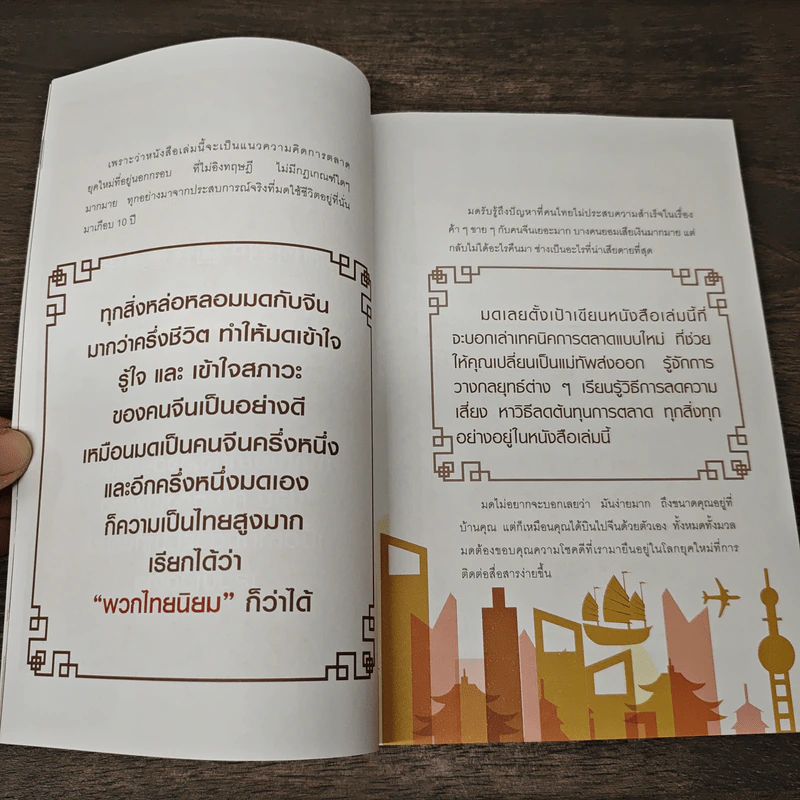 เพราะว่าหนังสือเล่มนี้จะเป็นแนวความคิดการตลาด
ยุคใหม่ที่อยู่นอกกรอบ ที่ไม่อิงทฤษฎี ไม่มีกฎเกณฑ์ใดๆ
มากมาย ทุกอย่างมาจากประสบการณ์จริงที่มดใช้ชีวิตอยู่ที่นั่น
มาเกือบ 10 ปี
ทุกสิ่งหล่อหลอมมดกับจีน
มากว่าครึ่งชีวิต ทำให้มดเข้าใจ
รู้ใจ และ เข้าใจสภาวะ
ของคนจีนเป็นอย่างดี
เหมือนมดเป็นคนจีนครึ่งหนึ่ง
และอีกครึ่งหนึ่งมดเอง
ก็ความเป็นไทยสูงมาก
เรียกได้ว่า
“พวกไทยนิยม” ก็ว่าได้
มดรับรู้ถึงปัญหาที่คนไทยไม่ประสบความสำเร็จในเรื่อง
ค้า ๆ ขาย ๆ กับคนจีนเยอะมาก บางคนยอมเสียเงินมากมาย แต่
กลับไม่ได้อะไรคืนมา ช่างเป็นอะไรที่น่าเสียดายที่สุด
มดเลยตั้งเป้าเขียนหนังสือเล่มนี้ที่
จะบอกเล่าเทคนิคการตลาดแบบใหม่ ที่ช่วย
ให้คุณเปลี่ยนเป็นแม่ทัพส่งออก รู้จักการ
วางกลยุทธ์ต่าง ๆ เรียนรู้วิธีการลดความ
เสี่ยง หาวิธีลดต้นทุนการตลาด ทุกสิ่งทุก
อย่างอยู่ในหนังสือเล่มนี้
มดไม่อยากจะบอกเลยว่า มันง่ายมาก ถึงขนาดคุณอยู่ที่
บ้านคุณ แต่ก็เหมือนคุณได้บินไปจีนด้วยตัวเอง ทั้งหมดทั้งมวล
มดต้องขอบคุณความโชคดีที่เรามายืนอยู่ในโลกยุคใหม่ที่การ
ติดต่อสื่อสารง่ายขึ้น